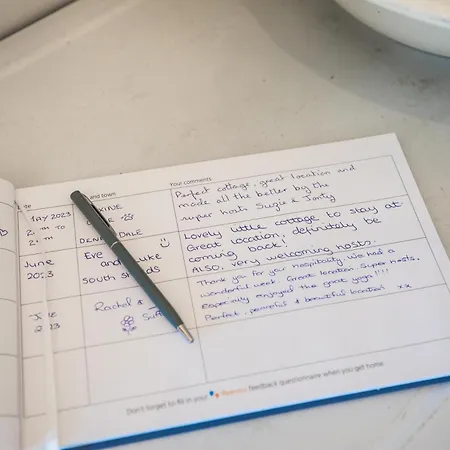 and town
Your comments
MAY 2023
TO
Perfect cottage, great location and
made all the better by the
super hosts Suzie & Jonty
DALE
June
2023
Eve
and Luke
South
Lovely little cottage to stay at.
Great location, definitely be
coming back!
Also, very welcoming hosts.
Rachel &
Thank you for your hospitality. We had a
wonderful week. Great location. Super hosts.
Especially enjoyed the goat yoga!!!!
Perfect, peaceful & beautiful xx
Don't forget to fill in your
feedback questionnaire when you get home.